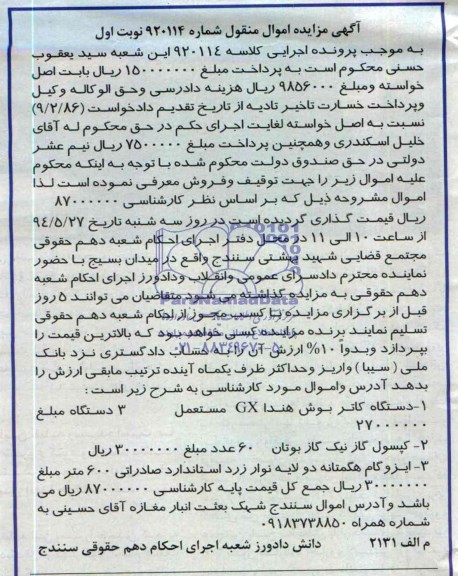 آگهی مزایده اموال منقول شماره ۹۲۰۱۱۴ نوبت اول
به موجب پرونده اجرایی کلاسه ۹۲۰۱۱٤ این شعبه سید یعقوب
حسنی محکوم است به پرداخت مبلغ ۱۵۰۰۰۰۰۰۰ ریال بابت اصل
خواسته ومبلغ ۹۸۵۶۰۰۰ ریال هزینه دادرسی وحق الوکاله وکیل
وپرداخت خسارت تاخیر تادیه از تاریخ تقدیم دادخواست (۹/۲/۸۶)
نسبت به اصل خواسته لغایت اجرای حکم در حق محکوم له آقای
خلیل اسکندری وهمچنین پرداخت مبلغ ۷۵۰۰۰۰۰ ریال نیم عشر
دولتی در حق صندوق دولت محکوم شده با توجه به اینکه محکوم
علیه اموال زیر را جهت توقیف وفروش معرفی نموده است لذا
اموال مشروحه ذیل که بر اساس نظر کارشناسی ۸۷۰۰۰۰۰۰
ریال قیمت گذاری گردیده است در روز سه شنبه تاریخ ۹٤/۵/۲۷
از ساعت ۱۰ الی ۱۱ در محل دفتر اجرای احکام شعبه دهم حقوقی
مجتمع قضایی شهید بهشتی سنندج واقع در میدان بسیج با حضور
نماینده محترم دادسرای عمومی وانقلاب ودادورز اجرای احکام شعبه
دهم حقوقی به مزایده گذاشته می شود متقاضیان می توانند ۵ روز
قبل از برگزاری مزایده با کسب مجوز از احکام شعبه دهم حقوقی
تسلیم نمایند برنده مزایده کسی خواهد بود که بالاترین قیمت را
بپردازد وبدواً ۱۰% ارزش آن را به حساب دادگستری نزد بانک
ملی ( سیبا ) واریز وحداکثر ظرف یکماه آینده ترتیب مابقی ارزش را
بدهد آدرس واموال مورد کارشناسی به شرح زیر است :
۱-دستگاه کاتر بوش هندا GX مستعمل ۳ دستگاه مبلغ
۲۷۰۰۰۰۰۰
۲- کپسول گاز نیک گاز بوتان ۶۰ عدد مبلغ ۳۰۰۰۰۰۰۰ ریال
۳- ایزوگام هگمتانه دو لایه نوار زرد استاندارد صادراتی ۶۰۰ متر مبلغ
۳۰۰۰۰۰۰۰ ریال جمع کل قیمت پایه کارشناسی ۸۷۰۰۰۰۰۰ ریال می
باشد وآدرس اموال سنندج شهرک بعثت انبار مغازه آقای حسینی به
شماره همراه ۰۹۱۸۳۷۳۸۸۵۰
م الف ۲۱۳۱ دانش دادورز شعبه اجرای احکام دهم حقوقی سنندج